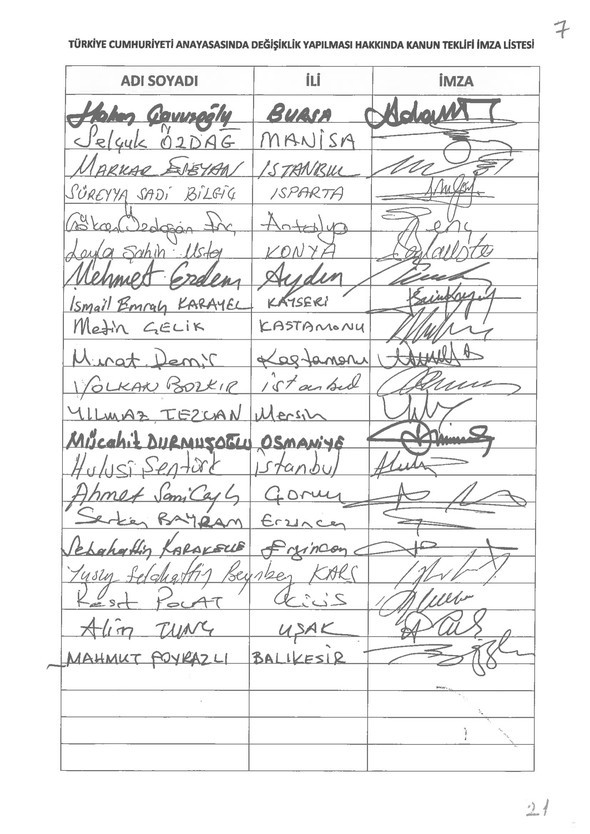 7
TÜRKİYE CUMHURİYETİ ANAYASASINDA DEĞİŞİKLİK YAPILMASI HAKKINDA KANUN TEKLİFİ İMZA LİSTESİ
ADI SOYADI İLİ İMZA
Hakan Çavuşoğlu BURSA
Selçuk ÖZDAĞ MANİSA
MARKAR ESEYAN ISTANBUL
SÜREYYA SADİ BİLGİÇ ISPARTA
Gökcen Özdoğan Enç Antalya
Leyla Şahin Usta KONYA
Mehmet Erdem Aydın
Ismail Emrah KARAYEL KAYSERİ
Metin ÇELİK KASTAMONU
Murat Demir Kastamonu
VOLKAN BOZKIR istanbul
YILMAZ TEZCAN Mersin
Mücahit DURMUŞOĞLU OSMANİYE
Hulusi Şentürk İstanbul
Ahmet Sami Ceylan Çorum
Serkan BAYRAM Erzincan
Sebahattin KARAKELLE Erzincan
Yusuf Selahattin Beyribey KARS
Reşit POLAT KİLİS
Alim TUNÇ UŞAK
MAHMUT POYRAZLI BALIKESİR
21